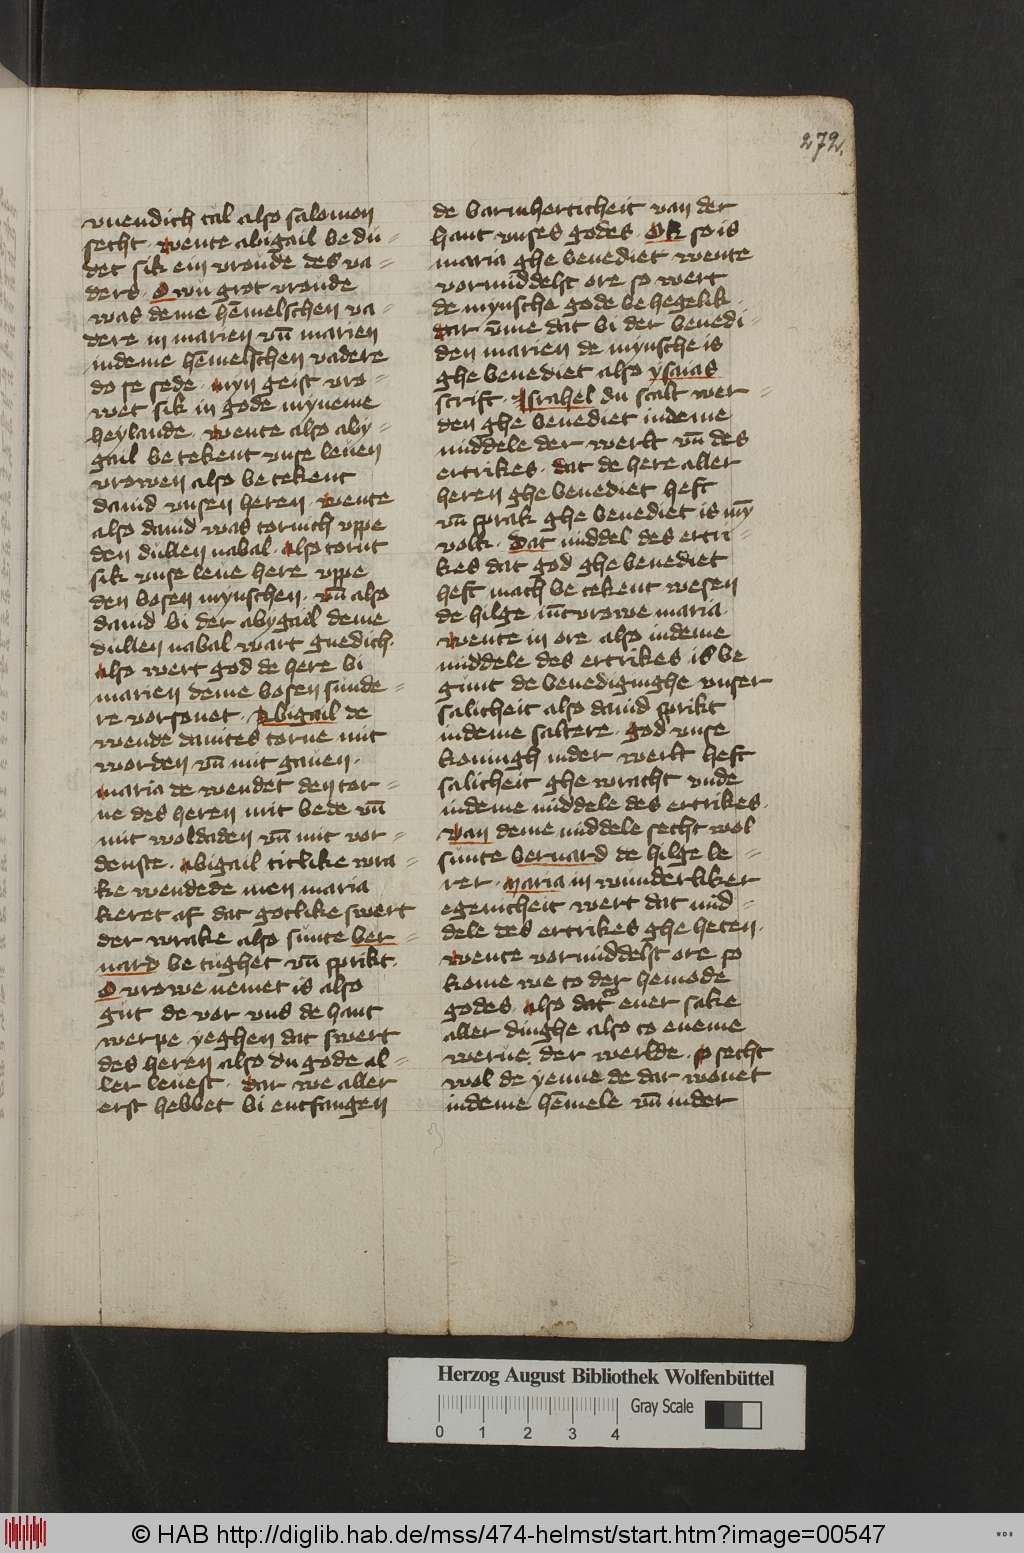 272.
vnendich tal also salomon
secht. wente abigail bedu=
det sik ein vroude des va=
ders. O wu grot vroude
was deme hēmelschen va=
dere in marien vn̄ marien
indeme hēmelschen vadere
do se sede. myn geist vro=
wet sik in gode myneme
heylande. wente also aby=
gail betekent vnse leuen
vrowen also betekent
dauid vnsen heren. wente
also dauid was tornich vppe
den dullen nabal. also tornt
sik vnse leue here vppe
den bosen mynschen. vn̄ also
dauid bi der abygail deme
dullen nabal wart gnedich.
also wert god de here bi
marien deme bosen sunde=
re vorsonet. Abigail de
wende dauites torne mit
worden vn̄ mit gauen.
maria de wendet den tor=
ne des heren mit bede vn̄
mit woldaden vn̄ mit vor=
denste. abigail titlike wra=
ke wendede men maria
keret af dat gotlike swert
der wrake also sunte ber=
nard betughet vn̄ sprikt.
O vrowe nemet is also
gut de vor vns de hant
werpe yeghen dat swert
des heren also du gode al=
ler leuest. dar we aller
erst hebbet bi entfangen
de barmherticheit van der
hant vnses godes. Ok so is
maria ghebenediet wente
vormiddelst ore so wert
de mynsche gode behegelik.
dar v̄me dat bi der benedi=
den marien de mynsche is
ghebenediet also ysaias
scrift. Israhel du scalt wer=
den ghebenediet indeme
middele der werlt vn̄ des
ertrikes. dat de here aller
heren ghebenediet heft
vn̄ sprak ghebenediet is mȳ
volk. Dat middel des ertri=
kes dat god ghebenediet
heft mach betekent wesen
de hilge iūcvrowe maria.
wente in ore also indeme
middele des ertrikes is be
gint de benedignighe vnser
salicheit also dauid sprikt
indeme saltere. god vnse
koningh inder werlt heft
salicheit ghewracht vnde
indeme middele des ertrikes.
Van deme middele secht wol
sunte bernard de hilge le=
rer. maria in wunderliker
egenicheit wert dat mid=
dele des ertrikes gheheten.
wente vormiddelst ore so
kome we to der hemode
godes. also dat to ener sake
aller dinghe also to eneme
werue der werlde. so secht
wol de yenne de dar wonet
indeme hēmele vn̄ inder
Herzog August Bibliothek Wolfenbüttel
Gray Scale
0 1 2 3 4
© HAB http://diglib.hab.de/mss/474-helmst/start.htm?image=00547